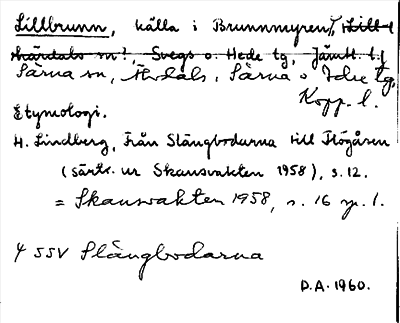 Lillbrunn, källa i Brunnmyren, Lill-
härdals sn?, Svegs o. Hede tg, Jämtl. l.
Särna sn, Älvdals, Särna o Idre tg,
Kopp. l.
Etymologi.
H. Lindberg, Från Slängbodarna till Högåsen
(särtr. ur Skansvakten 1958), s. 12.
= Skansvakten 1958, s. 16 sp. 1.
4 SSV Slängbodarna
D.A. 1960.